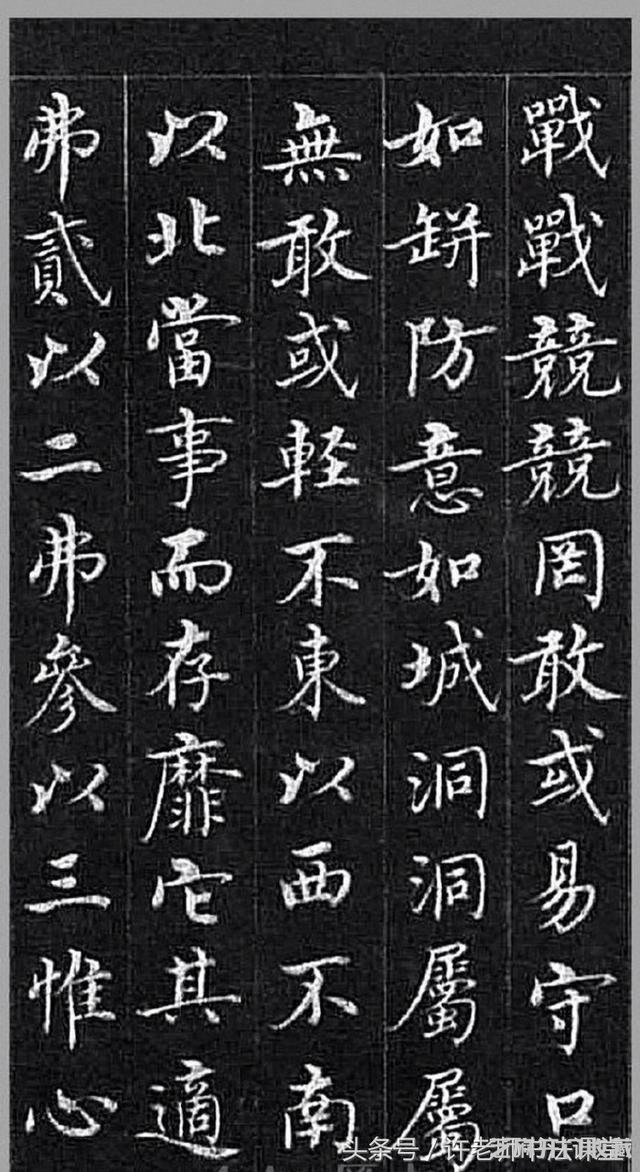 戰戰競競罔敢或易守口
如缾防意如城洞洞屬屬
無敢或輕不東以西不南
以北當事而存靡它其適
弗貳以二弗參以三惟心
头条号/许老师书法课堂